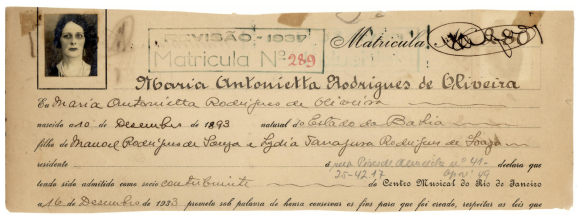 REVISÃO - 1937
Matricula Nº 289
Matricula
Maria Antonietta Rodrigues de Oliveira
Eu Maria Antonietta Rodrigues de Oliveira
nascido a 10 de Dezembro de 1893 natural do Estado da Bahia
filho de Manoel Rodrigues de Souza e Lydia Rodrigues de Souza
residente á rua nº 41 - declara que
25-4217
tendo sido admittida como socio contribuinte do Centro Musical do Rio de Janeiro
a 16 de Dezembro de 1933 prometto sob palavra de honra conservar os fins para que foi creado, respeitar as leis que